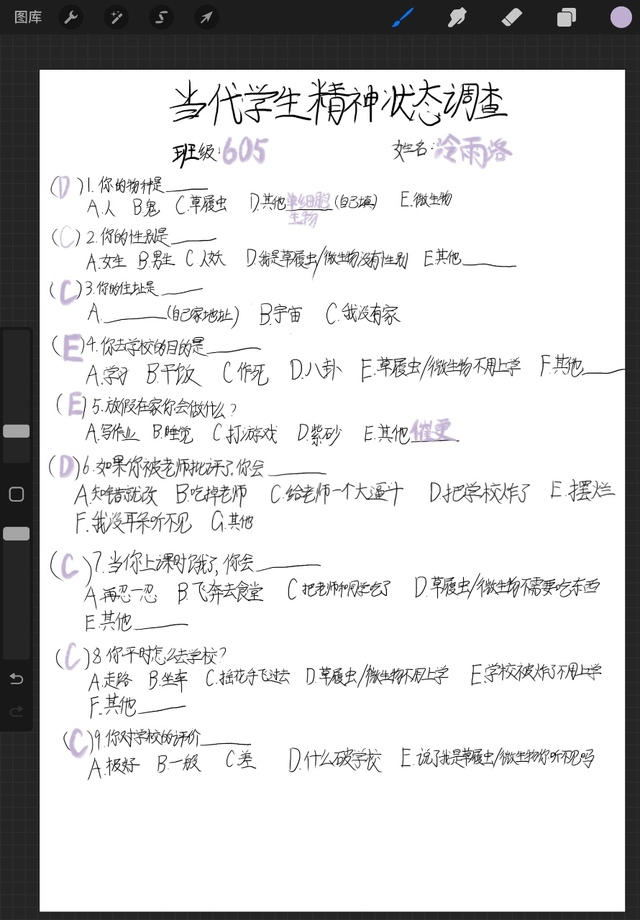 图库
当代学生精神状态调查
班级:605 姓名:冷雨洛
(D)1.你的物种是____
A.人 B.鬼 C.草履虫 D.其他单细胞生物(自己填) E.微生物
(C)2.你的性别是____
A.女生 B.男生 C.人妖 D.我是草履虫/微生物没有性别 E.其他____
(C)3.你的住址是____
A.____(自己家地址) B.宇宙 C.我没有家
(E)4.你去学校的目的是____
A.学习 B.干饭 C.作死 D.八卦 E.草履虫/微生物不用上学 F.其他____
(E)5.放假在家你会做什么?
A.写作业 B.睡觉 C.打游戏 D.紫砂 E.其他催更
(D)6.如果你被老师批评了,你会____
A.知错就改 B.吃掉老师 C.给老师一个大逼斗 D.把学校炸了 E.摆烂
F.我没耳朵听不见 G.其他
(C)7.当你上课时饿了,你会____
A.再忍一忍 B.飞奔去食堂 C.把老师和同学吃了 D.草履虫/微生物不需要吃东西
E.其他____
(C)8.你平时怎么去学校?
A.走路 B.坐车 C.摇花手飞过去 D.草履虫/微生物不用上学 E.学校被炸了不用上学
F.其他____
(C)9.你对学校的评价____
A.极好 B.一般 C.差 D.什么破学校 E.说了我是草履虫/微生物你听不见吗